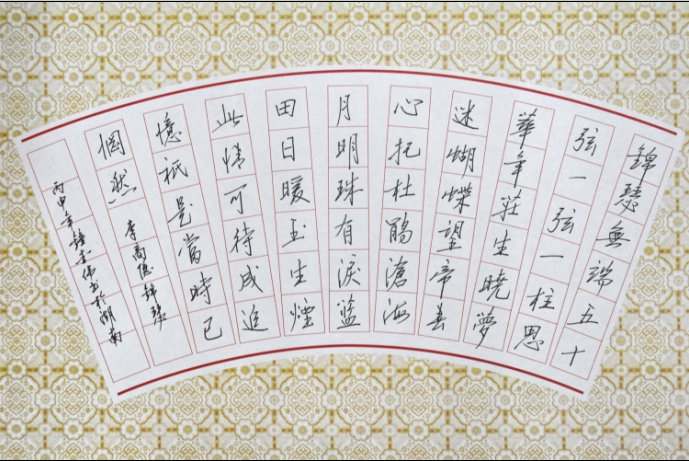 錦瑟無端五十
弦一弦一柱思
華年莊生曉夢
迷蝴蝶望帝春
心托杜鵑滄海
月明珠有淚藍
田日暖玉生煙
此情可待成追
憶祇是當時已
惘然 李商隱錦瑟
丙申年書於湖南